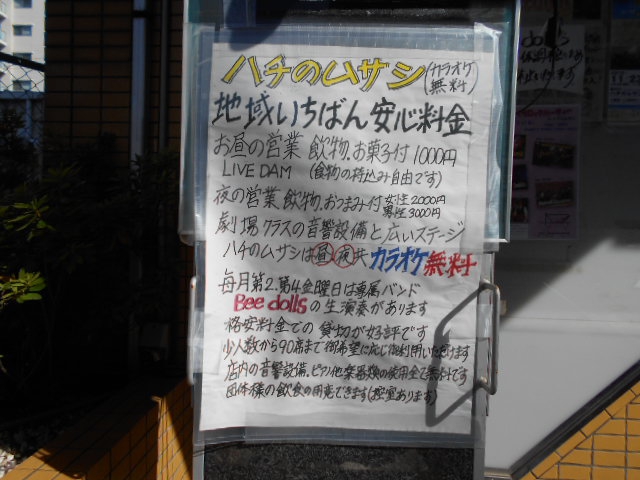 ハチのムサシ(カラオケ無料)
地域いちばん安心料金
お昼の営業 飲物、お菓子付 1000円
LIVE DAM (食物の持込み自由です)
夜の営業 飲物、おつまみ付 女性2000円 男性3000円
劇場クラスの音響設備と広いステージ
ハチのムサシは昼夜共カラオケ無料
毎月第2、第4金曜日は専属バンド
Bee dollsの生演奏があります
格安料金での貸切が好評です
少人数から90席まで御希望に応じ御利用いただけます
店内の音響設備、ピアノ他楽器類の使用全て無料です
団体様の飲食の用意できます(控室あります)
dolls